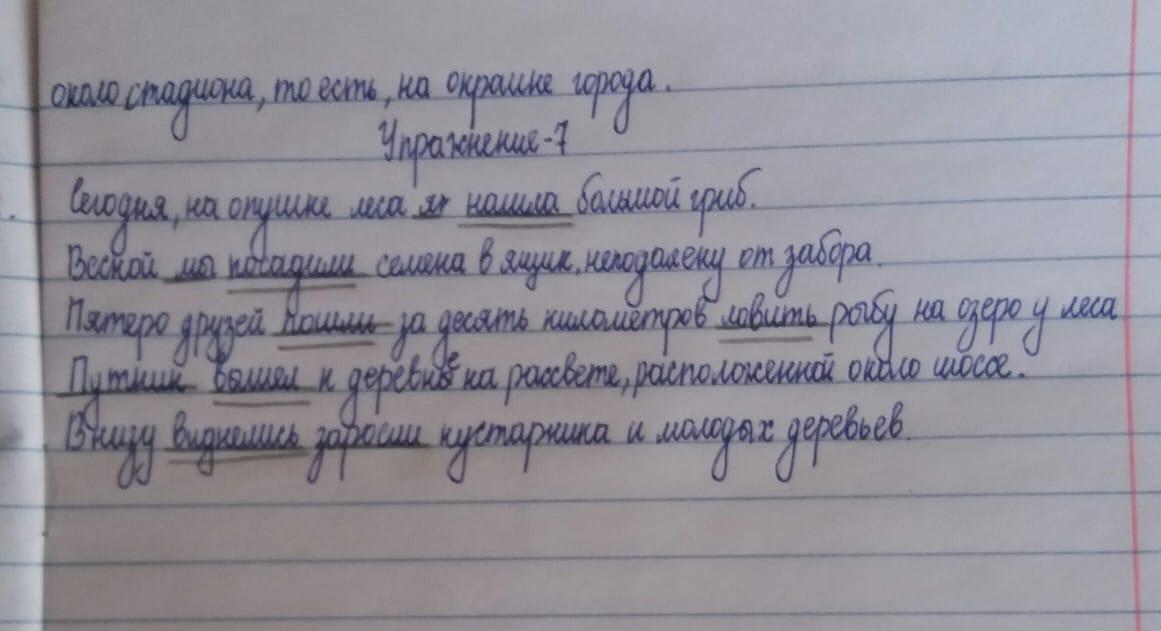 около стадиона, то есть, на окраине города.
Упражнение-7
Сегодня, на опушке леса я нашла большой гриб.
Весной мы посадили семена в ящик, неподалеку от забора.
Пятеро друзей пошли за десять километров ловить рыбу на озеро у леса
Путник вышел к деревне на рассвете, расположенной около шоссе.
Внизу виднелись заросли кустарника и молодых деревьев.